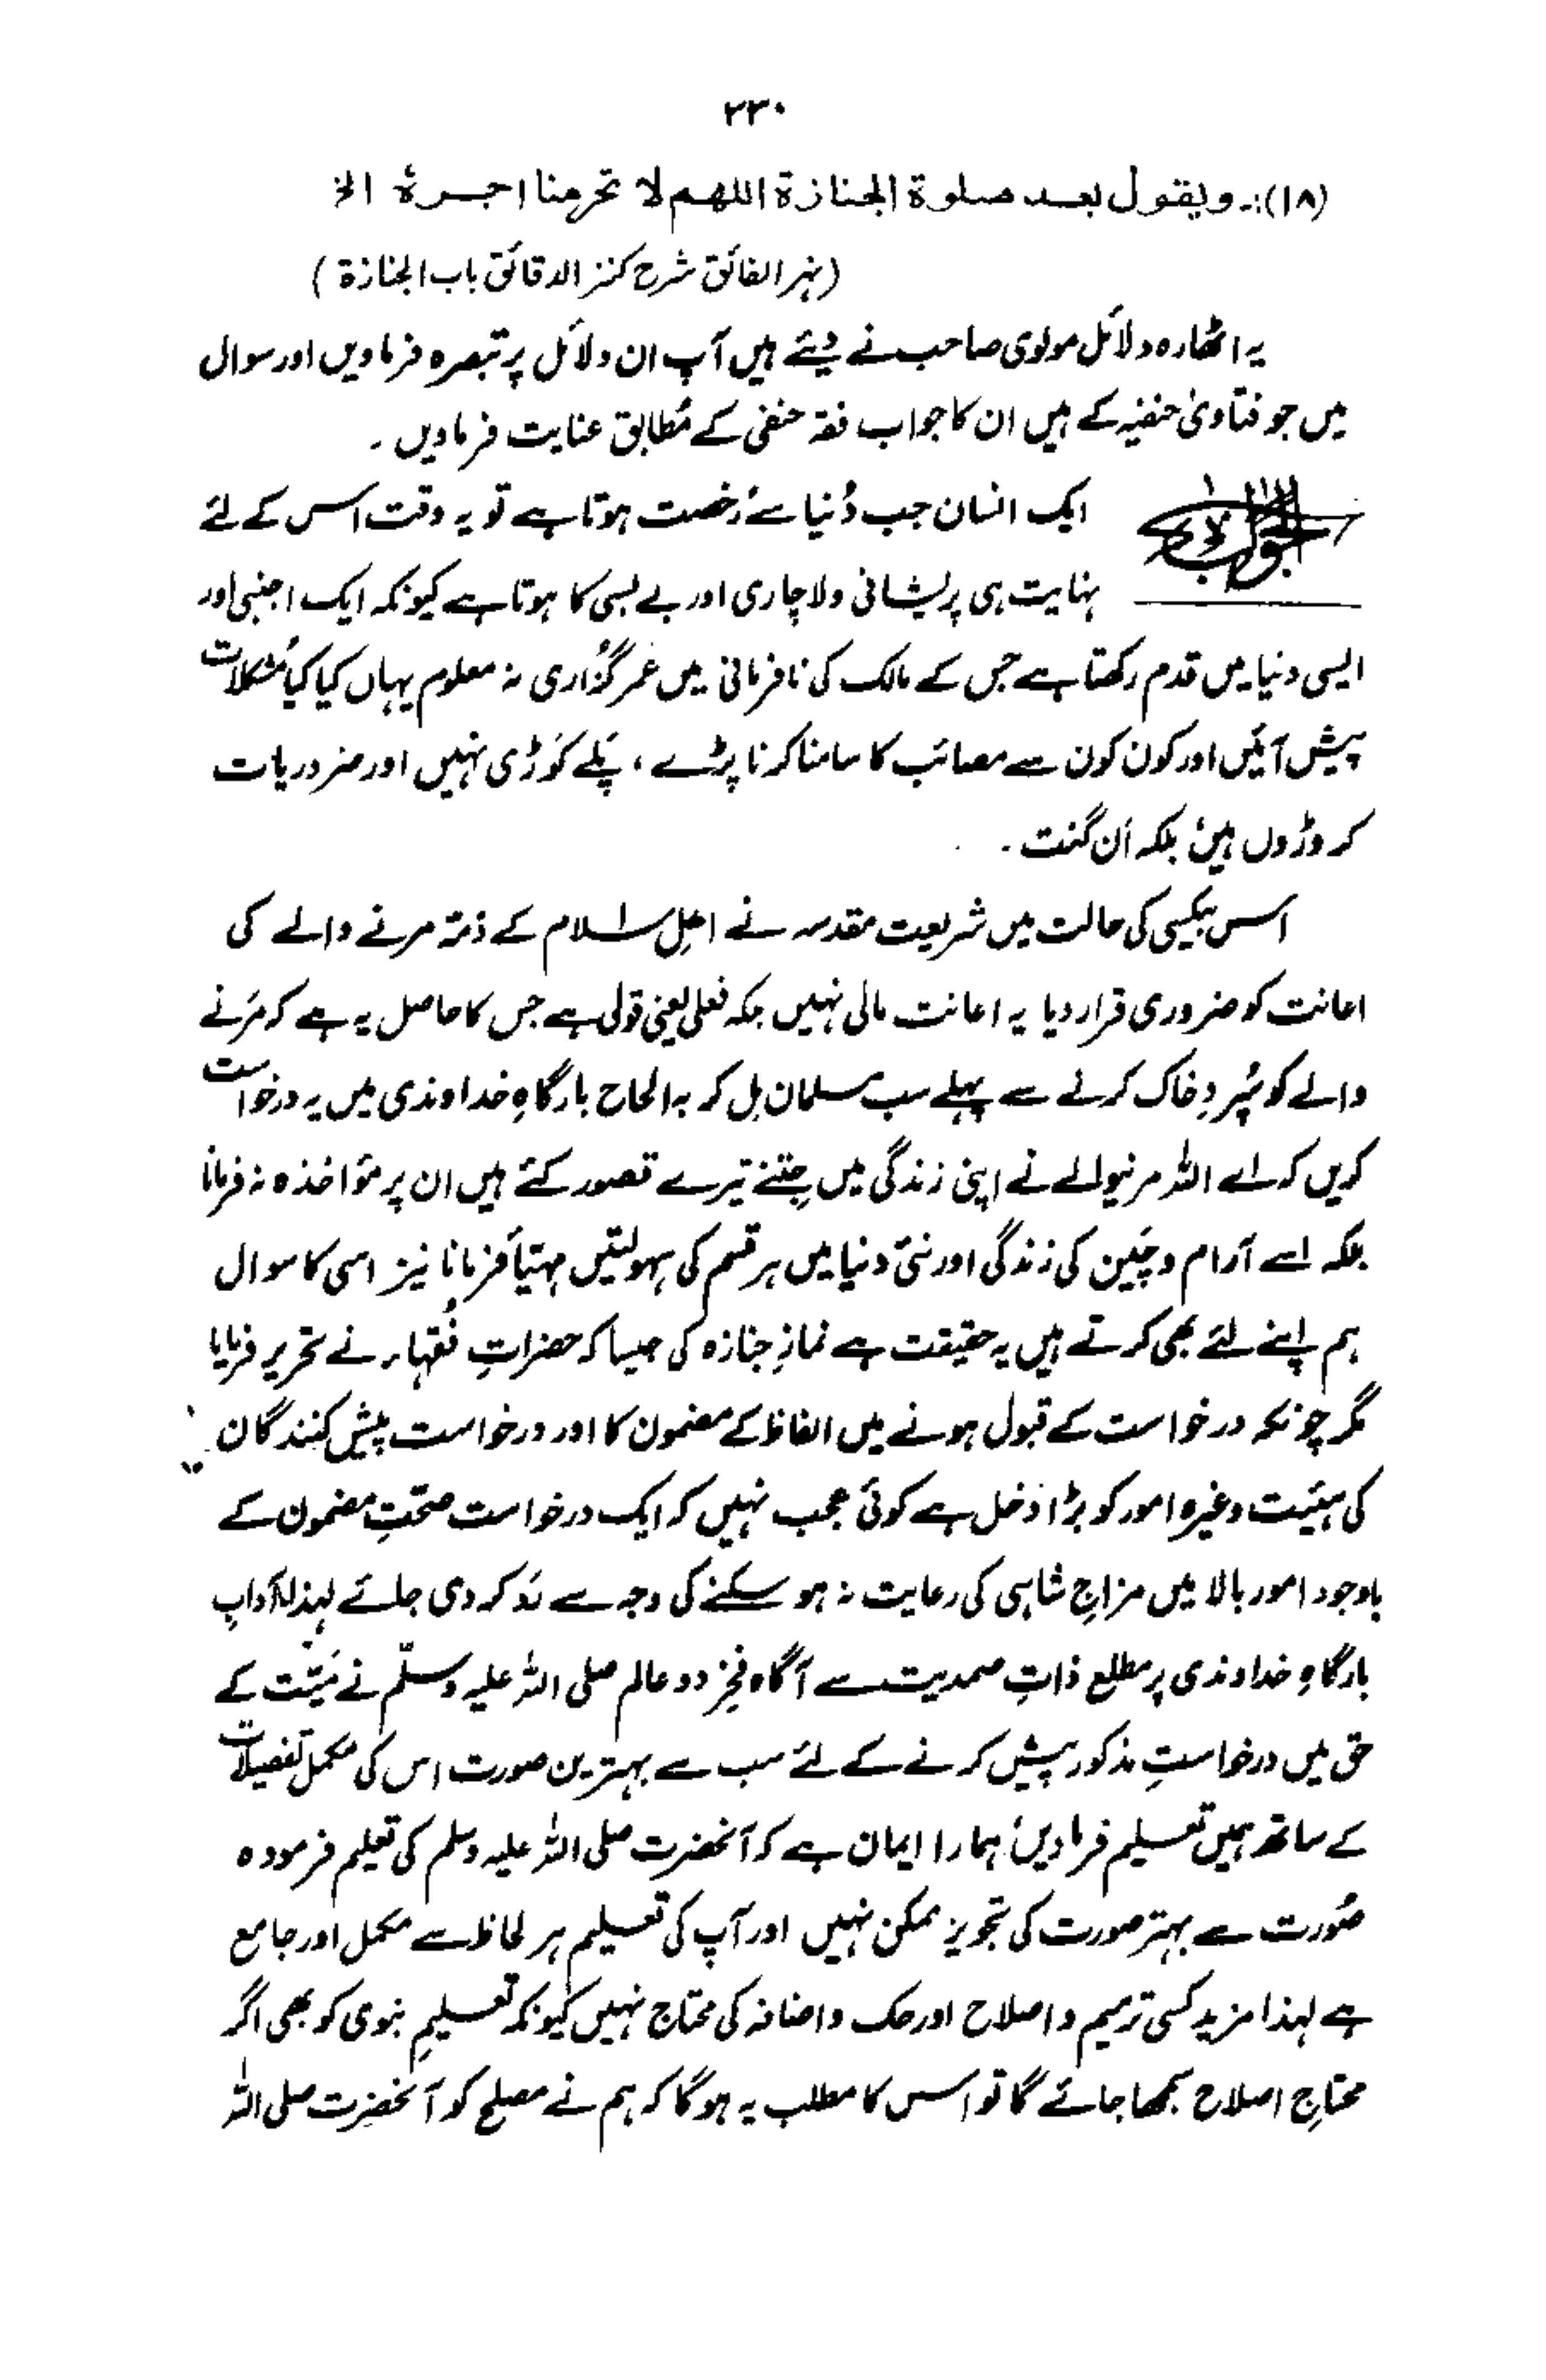 ۲۳۰
(۱۸):۔ ویقول بعد صلوة الجنازة اللهم لا تحرمنا اجرهٗ الخ
(نہر الفائق شرح کنز الدقائق باب الجنازة)
یہ اٹھارہ دلائل مولوی صاحب نے دیئے ہیں آپ ان دلائل پر تبصرہ فرماویں اور سوال
میں جو فتاویٰ حنفیہ کے ہیں ان کا جواب فقہ حنفی کے مُطابق عنایت فرماویں ۔
الجواب
ایک انسان جب دُنیا سے رُخصت ہوتا ہے تو یہ وقت اس کے لئے
نہایت ہی پریشانی ولاچاری اور بے بسی کا ہوتا ہے کیونکہ ایک اجنبی اور
ایسی دنیا میں قدم رکھتا ہے جس کے مالک کی نافرمانی میں عمر گزاری نہ معلوم یہاں کیا کیا مُشکلات
پیش آئیں اور کون کون سے مصائب کا سامنا کرنا پڑے ، پلّے کوڑی نہیں اور ضروریات
کروڑوں ہیں بلکہ اَن گنت ۔
اس بیکسی کی حالت میں شریعت مقدسہ نے اہلِ اسلام کے ذمّہ مرنے والے کی
اعانت کو ضروری قرار دیا یہ اعانت مالی نہیں بلکہ فعلی یعنی قولی ہے جس کا حاصل یہ ہے کہ مَرنے
والے کو سُپردِ خاک کرنے سے پہلے سب مسلمان مِل کر بہ الحاح بارگاہِ خداوندی میں یہ درخواست
کریں کہ اے اللہ مرنیوالے نے اپنی زندگی میں جتنے تیرے قصور کئے ہیں ان پر مؤاخذہ نہ فرمانا
بلکہ اسے آرام و چَین کی زندگی اور نئی دنیا میں ہر قسم کی سہولتیں مہیّا فرمانا نیز اسی کا سوال
ہم اپنے لئے بھی کرتے ہیں یہ حقیقت ہے نمازِ جنازہ کی جیسا کہ حضراتِ فُقہاء نے تحریر فرمایا
مگر چونکہ درخواست کے قبول ہونے میں الفاظ کے مضمون کا اور درخواست پیش کنندگان
کی ہیئیت وغیرہ امور کو بڑا دَخل ہے کوئی عجب نہیں کہ ایک درخواست صحّتِ مضمون کے
باوجود امور بالا میں مزاجِ شاہی کی رعایت نہ ہو سکنے کی وجہ سے رَد کر دی جائے لہٰذا آدابِ
بارگاہِ خداوندی پر مطلع ذاتِ صمدیت سے آگاہ فخرِ دو عالم صلی اللہ علیہ وسلّم نے مَیّت کے
حق میں درخواستِ مذکور پیش کرنے کے لئے سب سے بہترین صورت اس کی مکمل تفصیلات
کے ساتھ ہمیں تعسلیم فرمادیں ہمارا ایمان ہے کہ آنحضرت صلی اللہ علیہ وسلم کی تعلیم فرمودہ
صُورت سے بہتر صورت کی تجویز ممکن نہیں اور آپ کی تعسلیم ہر لحاظ سے مکمل اور جامع
ہے لہذا مزید کسی ترمیم و اصلاح اور حک و اضافہ کی محتاج نہیں کیونکہ تعسلیمِ نبوی کو بھی اگر
محتاجِ اصلاح سمجھا جائے گا تو اس کا مطلب یہ ہوگا کہ ہم نے مصلح کو آنحضرت صلی اللہ